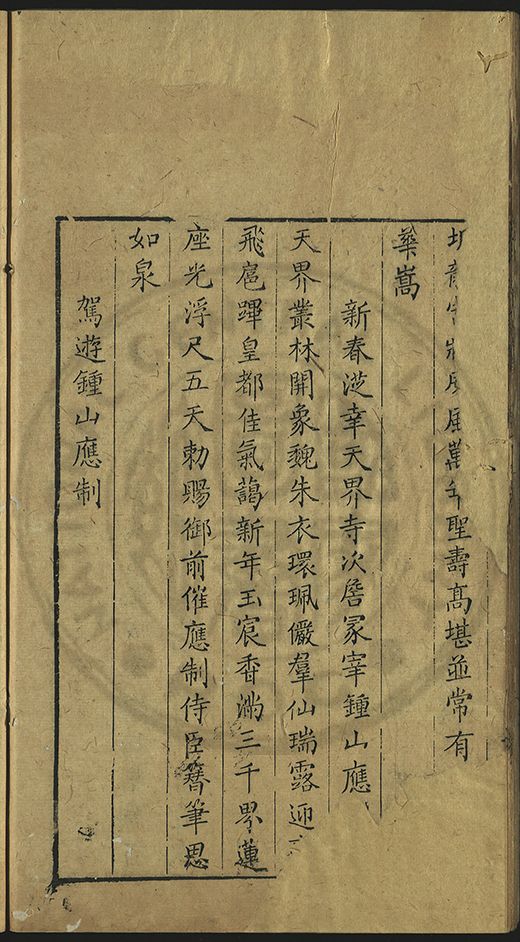 聖壽高堪並常有
華嵩
新春從幸天界寺次詹冢宰鍾山應
天界叢林開象魏朱衣環珮儼羣仙瑞露迎
飛扈蹕皇都佳氣藹新年玉宸香滿三千界蓮
座光浮尺五天勅賜御前催應制侍臣簪筆思
如泉
駕遊鍾山應制